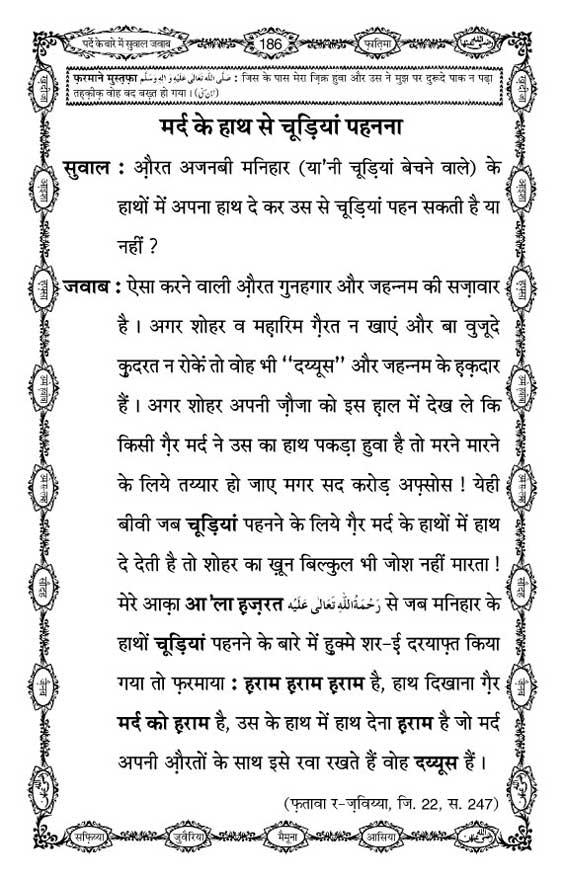 पर्दे के बारे में सुवाल जवाब 186 फ़ातिमा
फ़रमाने मुस्तफ़ा صَلَّى اللهُ تَعَالٰى عَلَيْهِ وَاٰلِهٖ وَسَلَّم : जिस के पास मेरा ज़िक्र हुवा और उस ने मुझ पर दुरूदे पाक न पढ़ा
तह़क़ीक़ वोह बद बख़्त हो गया ।
मर्द के हाथ से चूड़ियां पहनना
सुवाल : औ़रत अजनबी मनिहार (या'नी चूड़ियां बेचने वाले) के
हाथों में अपना हाथ दे कर उस से चूड़ियां पहन सकती है या
नहीं ?
जवाब : ऐसा करने वाली औ़रत गुनहगार और जहन्नम की सज़ावार
है । अगर शोहर व महारिम ग़ैरत न खाएं और बा वुजूदे
क़ुदरत न रोकें तो वोह भी ‘‘दय्यूस’’ और जहन्नम के ह़क़दार
हैं । अगर शोहर अपनी ज़ौजा को इस ह़ाल में देख ले कि
किसी ग़ैर मर्द ने उस का हाथ पकड़ा हुवा है तो मरने मारने
के लिये तय्यार हो जाए मगर सद करोड़ अफ़्सोस ! येही
बीवी जब चूड़ियां पहनने के लिये ग़ैर मर्द के हाथों में हाथ
दे देती है तो शोहर का ख़ून बिल्कुल भी जोश नहीं मारता !
मेरे आक़ा आ'ला ह़ज़रत رَحْمَةُ اللهِ تَعَالٰى عَلَيْه से जब मनिहार के
हाथों चूड़ियां पहनने के बारे में हुक्मे शर-ई दरयाफ़्त किया
गया तो फ़रमाया : ह़राम ह़राम ह़राम है, हाथ दिखाना ग़ैर
मर्द को ह़राम है, उस के हाथ में हाथ देना ह़राम है जो मर्द
अपनी औ़रतों के साथ इसे रवा रखते हैं वोह दय्यूस हैं ।
(फ़तावा र-ज़विय्या, जि. 22, स. 247)
सफ़िय्या जुवैरिया मैमूना आसिया